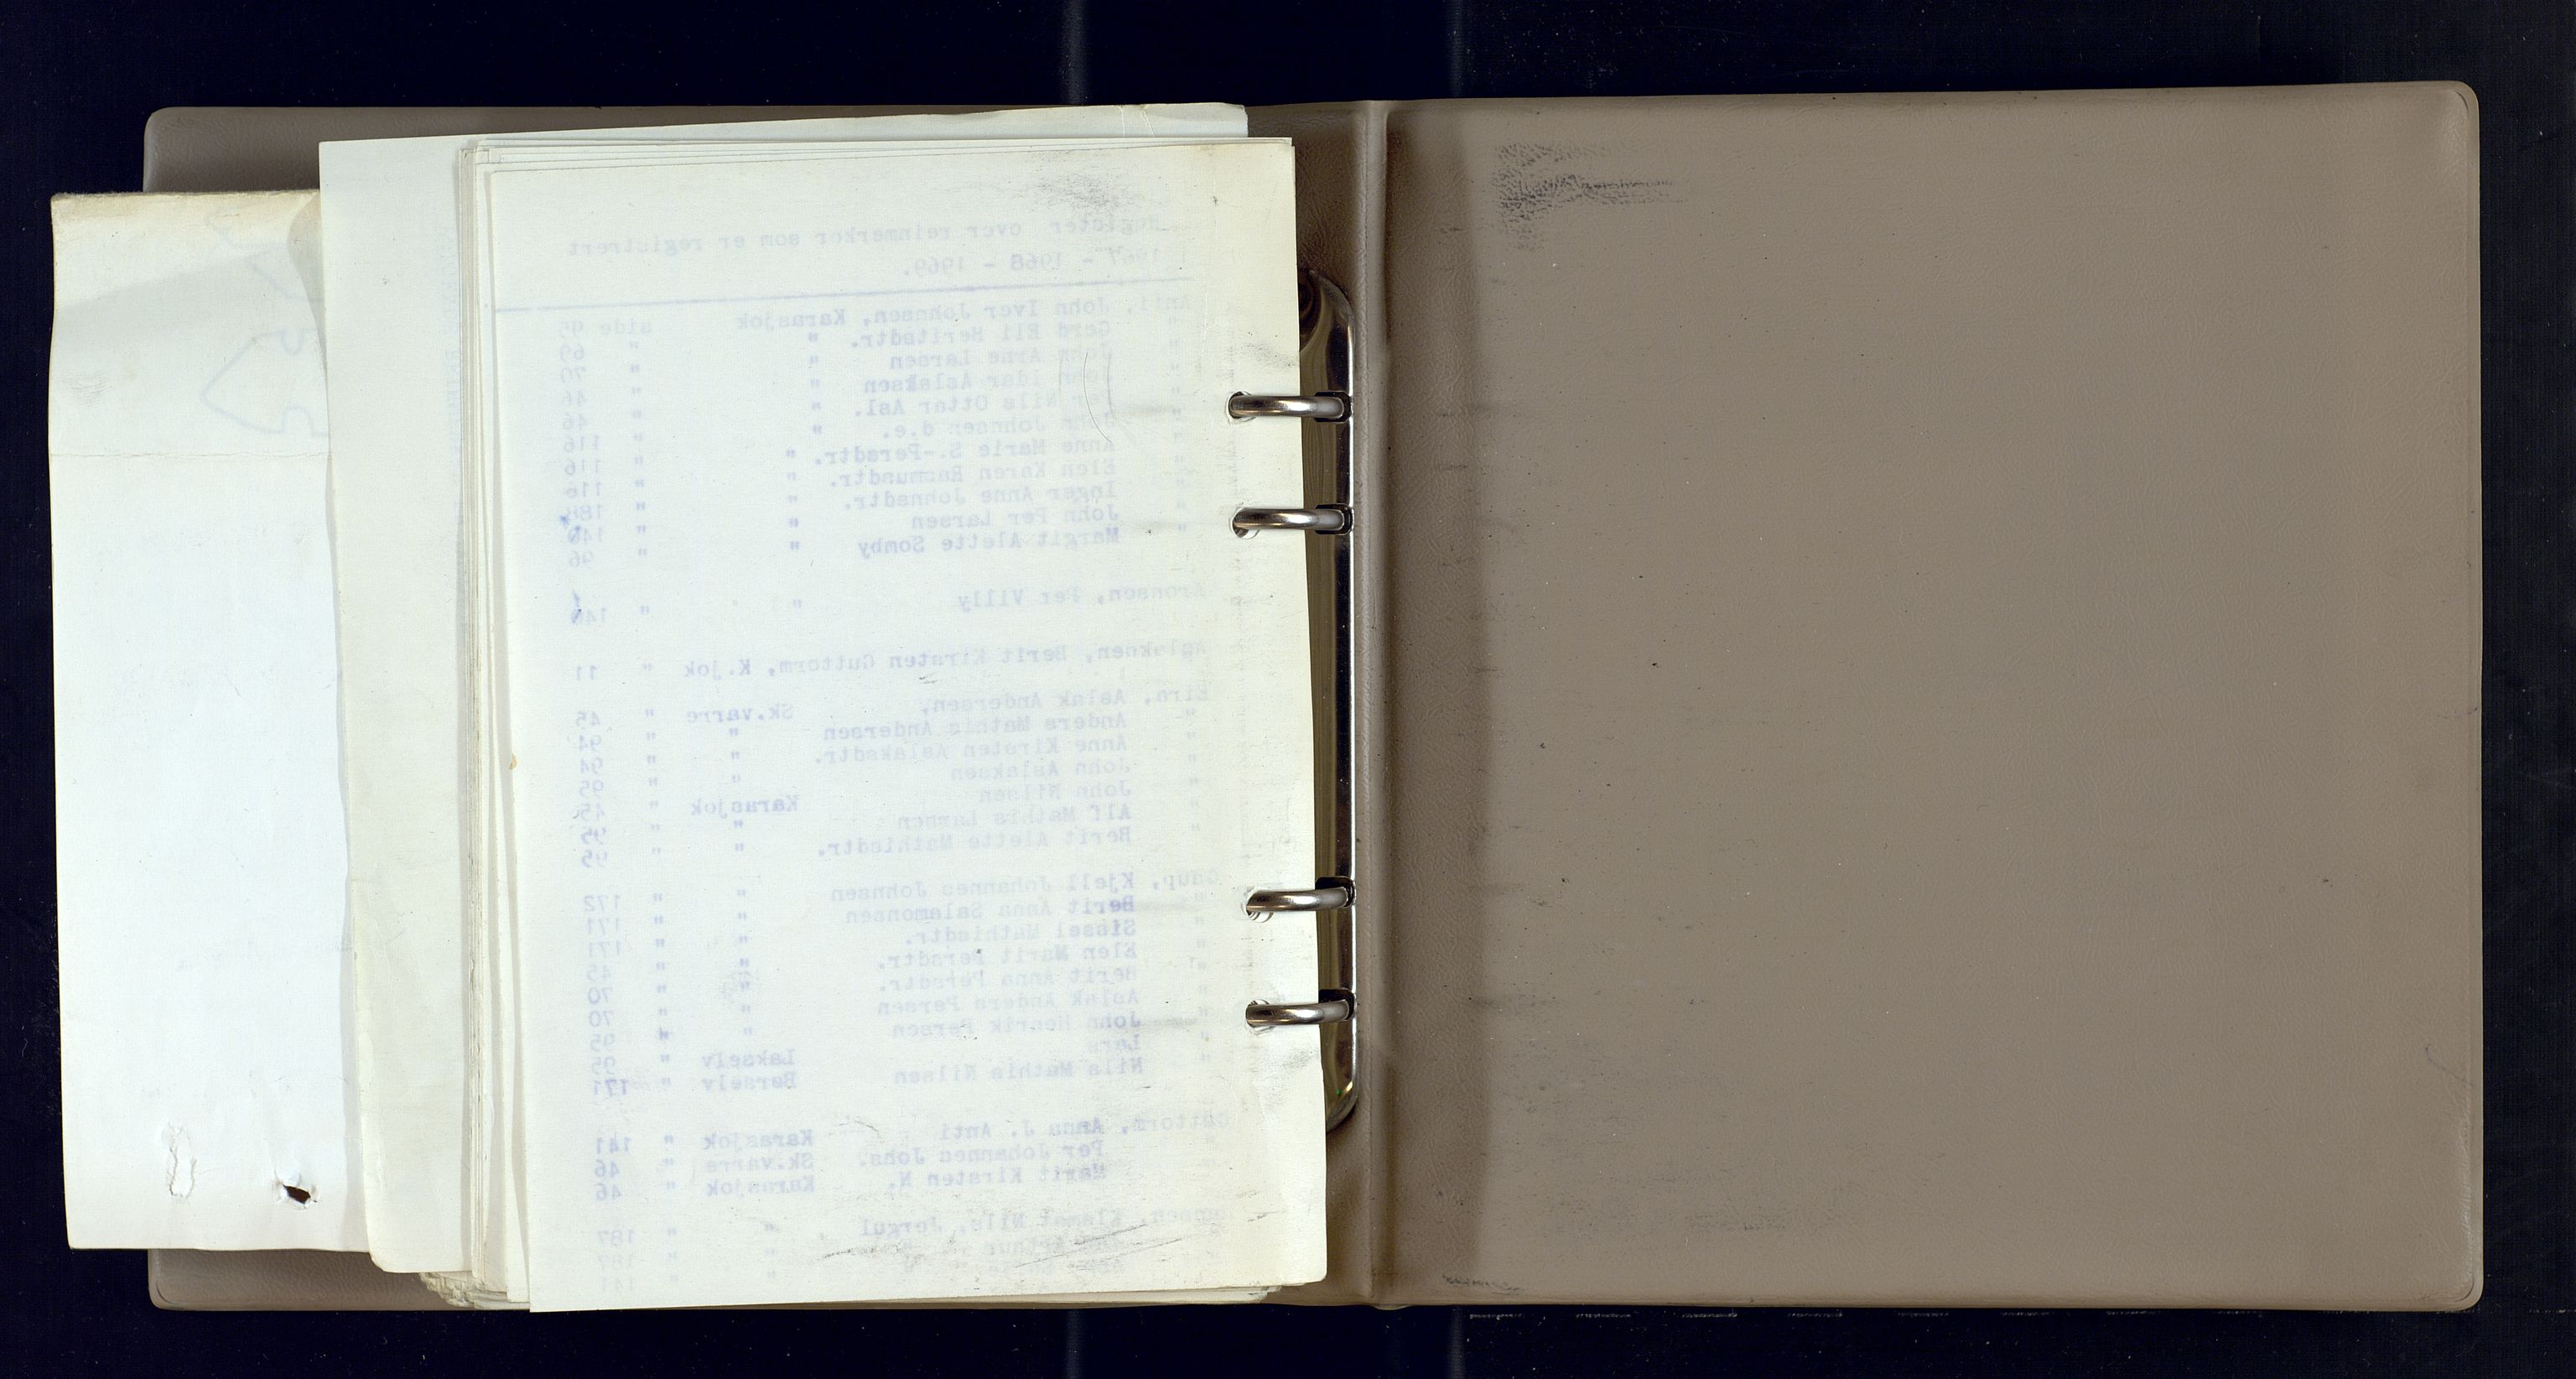 Register over reinmerker som er registrert
1967 - 1968 - 1969.
Anti, John Iver Johnsen, Karasjok side 95
" Gerd Eli Beritsdtr. " " 69
" John Arne Larsen " " 79
" John Idar Aslaksen " " 46
" Per Nils Ottar Asl. " " 46
" John Johnsen d.e. " " 116
" Anne Marie S.-Persdtr. " " 116
" Elen Karen Rasmusdtr. " " 116
" Inger Anne Johnsdtr. " " 188
" John Per Larsen " " 140
" Margit Alette Somby " " 96
Aronsen, Per Villy " " 140
Aslaksen, Berit Kirsten Guttorm, K.jok " 11
Eira, Aslak Andersen, Sk.varre " 45
" Anders Mathis Andersen " " 94
" Anne Kirsten Aslaksdtr. " " 94
" John Aslaksen " " 95
" John Nilsen Karasjok " 45
" Alf Mathis Larsen " " 95
" Berit Alette Mathisdtr. " " 95
Gaup, Kjell Johannes Johnsen " " 172
" Berit Anna Salamonsen " " 171
" Sissel Mathisdtr. " " 171
" Elen Marit Persdtr. " " 45
" Berit Anna Persdtr. " " 70
" Aslak Anders Persen " " 70
" John Henrik Persen " " 95
" Lars Lakselv " 95
" Nils Mathis Nilsen Børselv " 171
Guttorm, Anna J. Anti Karasjok " 141
" Per Johannes Johs. Sk.varre " 46
" Marit Kirsten N. Karasjok " 46
Jensen, Klemet Nils, Jergul " " 187
Arthur " " 187
" " 141